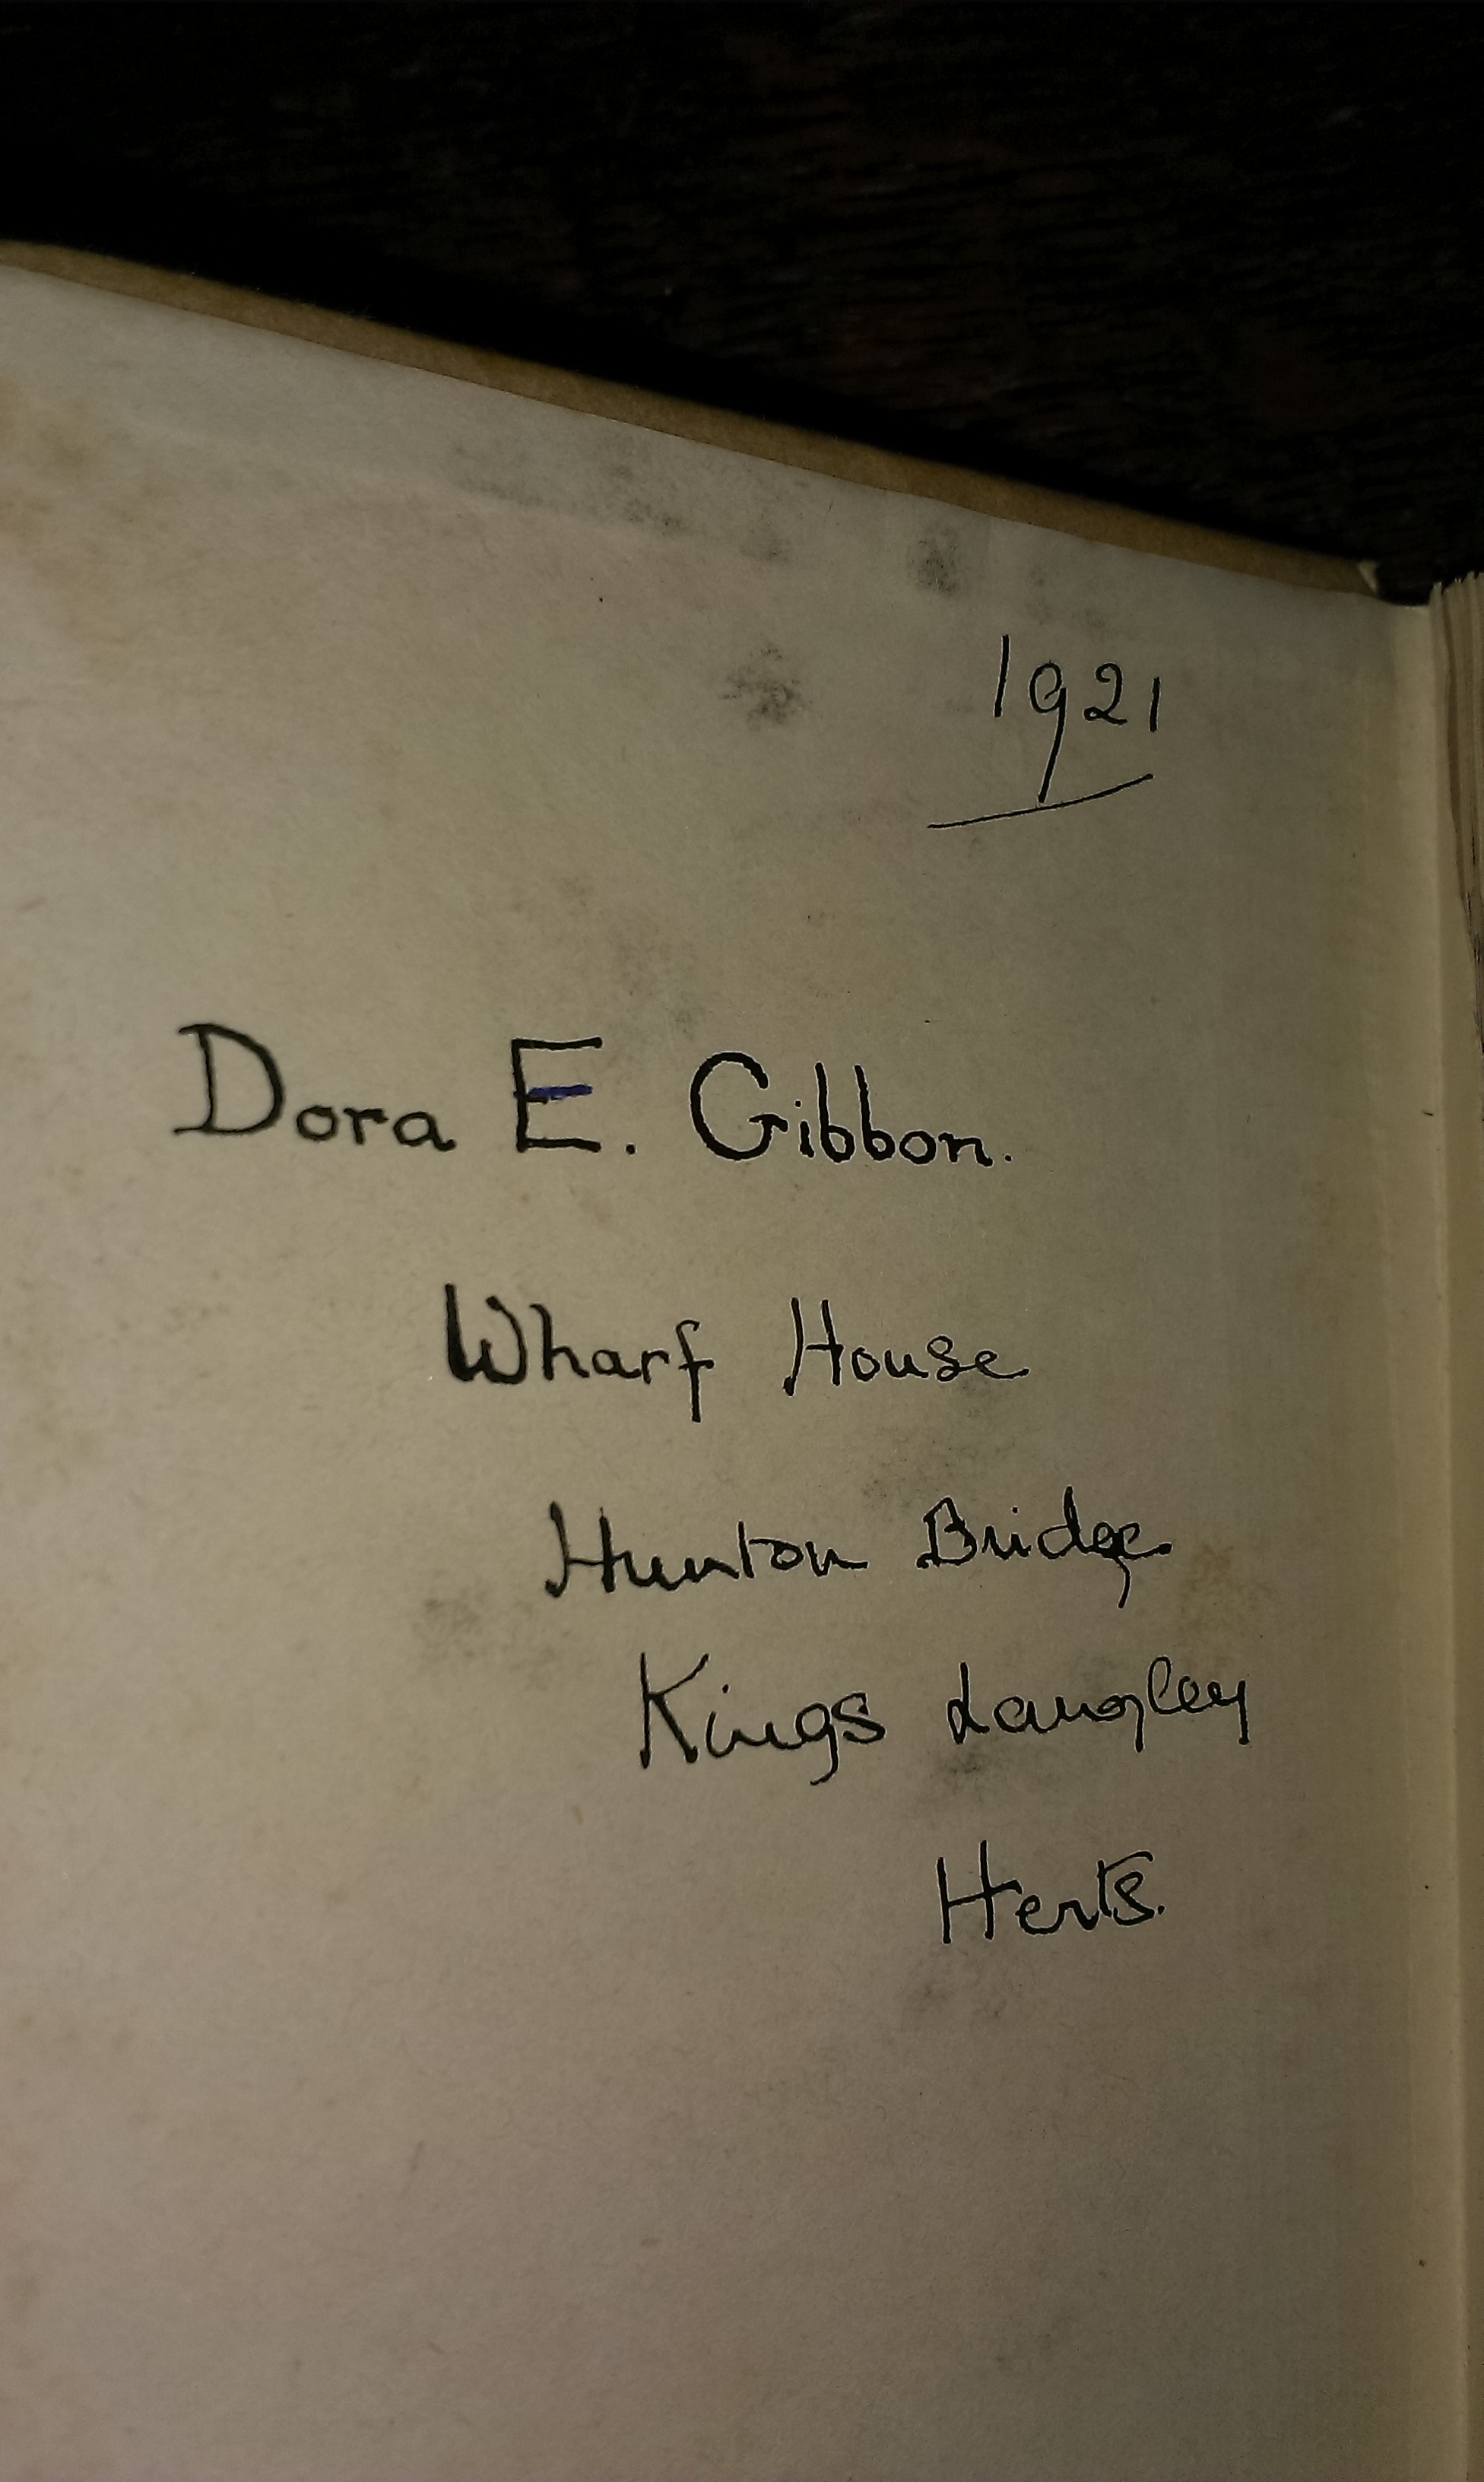 1921
Dora E. Gibbon.
Wharf House
Hunton Bridge.
Kings Langley
Herts.